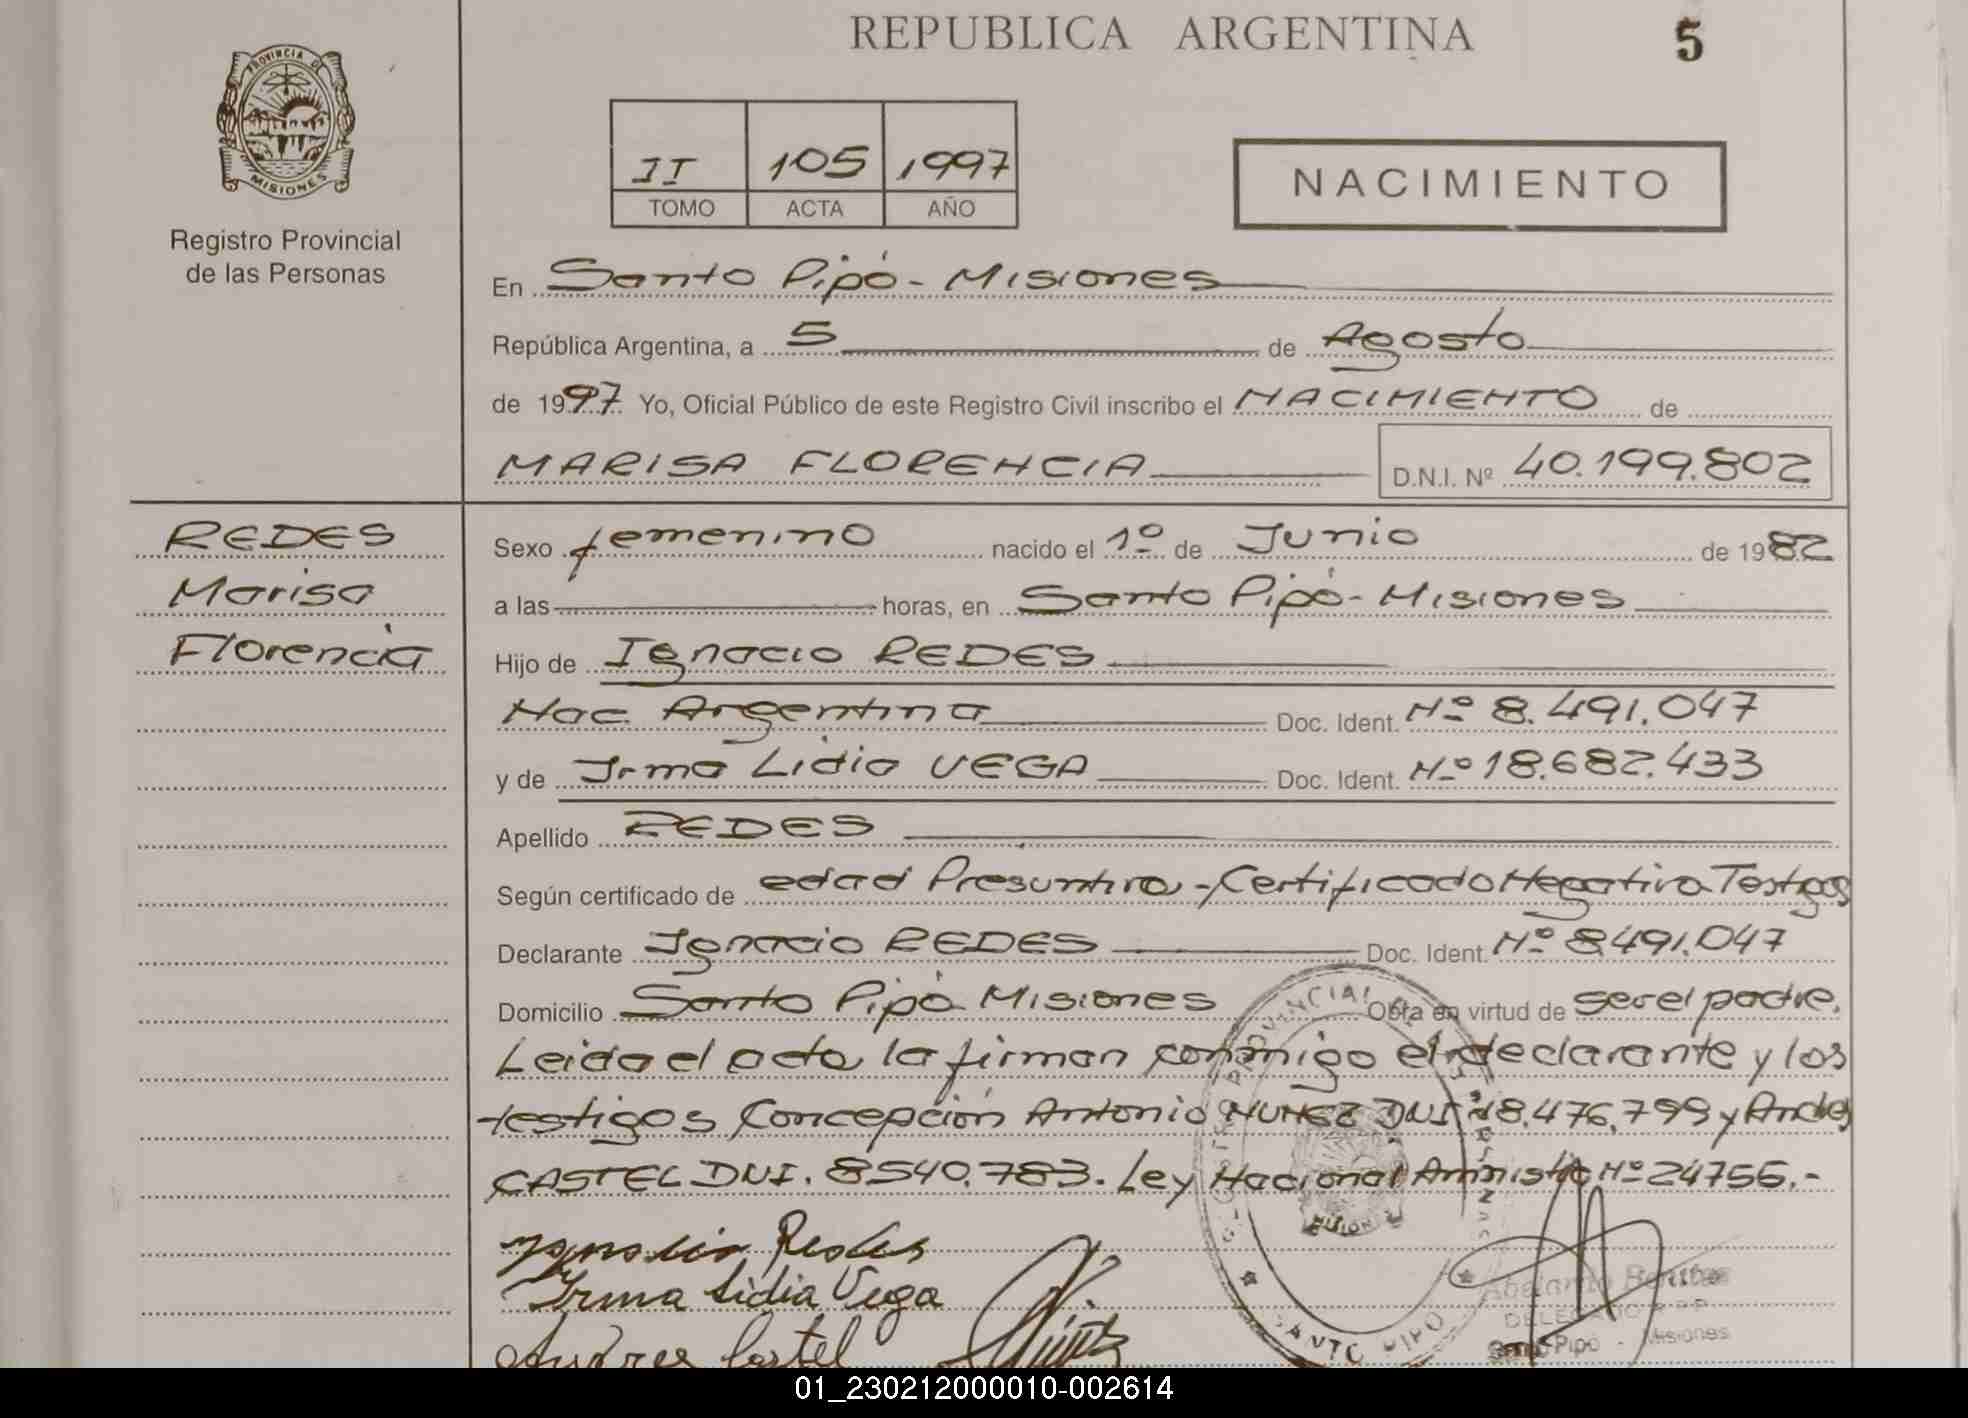 REPUBLICA ARGENTINA
5
PROVINCIA DE
MISIONES
Registro Provincial
de las Personas
II 105 1997
TOMO ACTA AÑO
NACIMIENTO
En Santo Pipó - Misiones
República Argentina, a 5 de Agosto
de 1997 Yo, Oficial Público de este Registro Civil inscribo el NACIMIENTO de
MARISA FLORENCIA D.N.I. Nº 40.199.802
REDES
Marisa
Florencia
Sexo femenino nacido el 1º de Junio de 1982
a las horas, en Santo Pipó - Misiones
Hijo de Ignacio REDES
Nac. Argentina Doc. Ident. Nº 8.491.047
y de Irma Lidia VEGA Doc. Ident. Nº 18.682.433
Apellido REDES
Según certificado de edad Presuntiva - Certificado Negativo Testigos
Declarante Ignacio REDES Doc. Ident. Nº 8.491.047
Domicilio Santo Pipó Misiones Obra en virtud de ser el padre.
Leida el acta, la firman conmigo el declarante y los
testigos Concepción Antonio NUÑEZ DNI 18.476.799 y Andres
CASTEL DNI. 8540.783. Ley Nacional Amnistia Nº 24755.-
Ignacio Redes
Irma Lidia Vega
Andres Castel
SANTO PIPO
Benitez
DELEGADO R.P.P.
Santo Pipó - Misiones
01_230212000010-002614